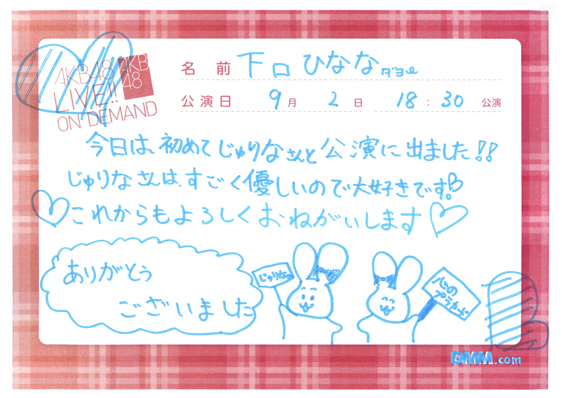 AKB48
LIVE!!
ON DEMAND
AKB
48
名前 下口ひなな ダヨe
公演日 9月 2日 18:30 公演
今日は初めてじゅりなさんと公演に出ました!!
じゅりなさんは、すごく優しいので大好きです!
これからもよろしくおねがいします♡
ありがとう
ございました
じゅりな
心の
プラカード
DMM.com